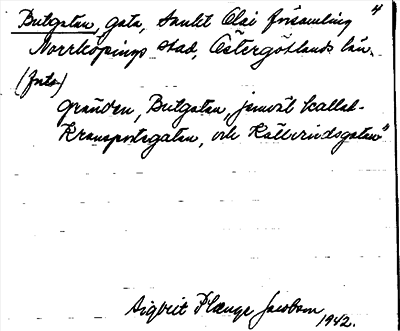 Butgatan, gata, Sankt Olai församling 4
Norrköpings stad, Östergötlands län.
(forts.)
gränden, Butgatan, "jemväl kallad
Kransportsgatan, och Källvindsgatan"
Sigbrit Plænge Jacobson
1942.